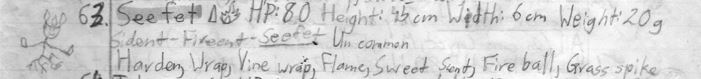 63. Seefet HP: 80 Height: 12 cm Width: 6cm Weight: 20g
Sident - Fireant - Seefet Un common
Harden, Wrap, Vine wrap, Flame, Sweet Sent, Fire ball, Grass spike